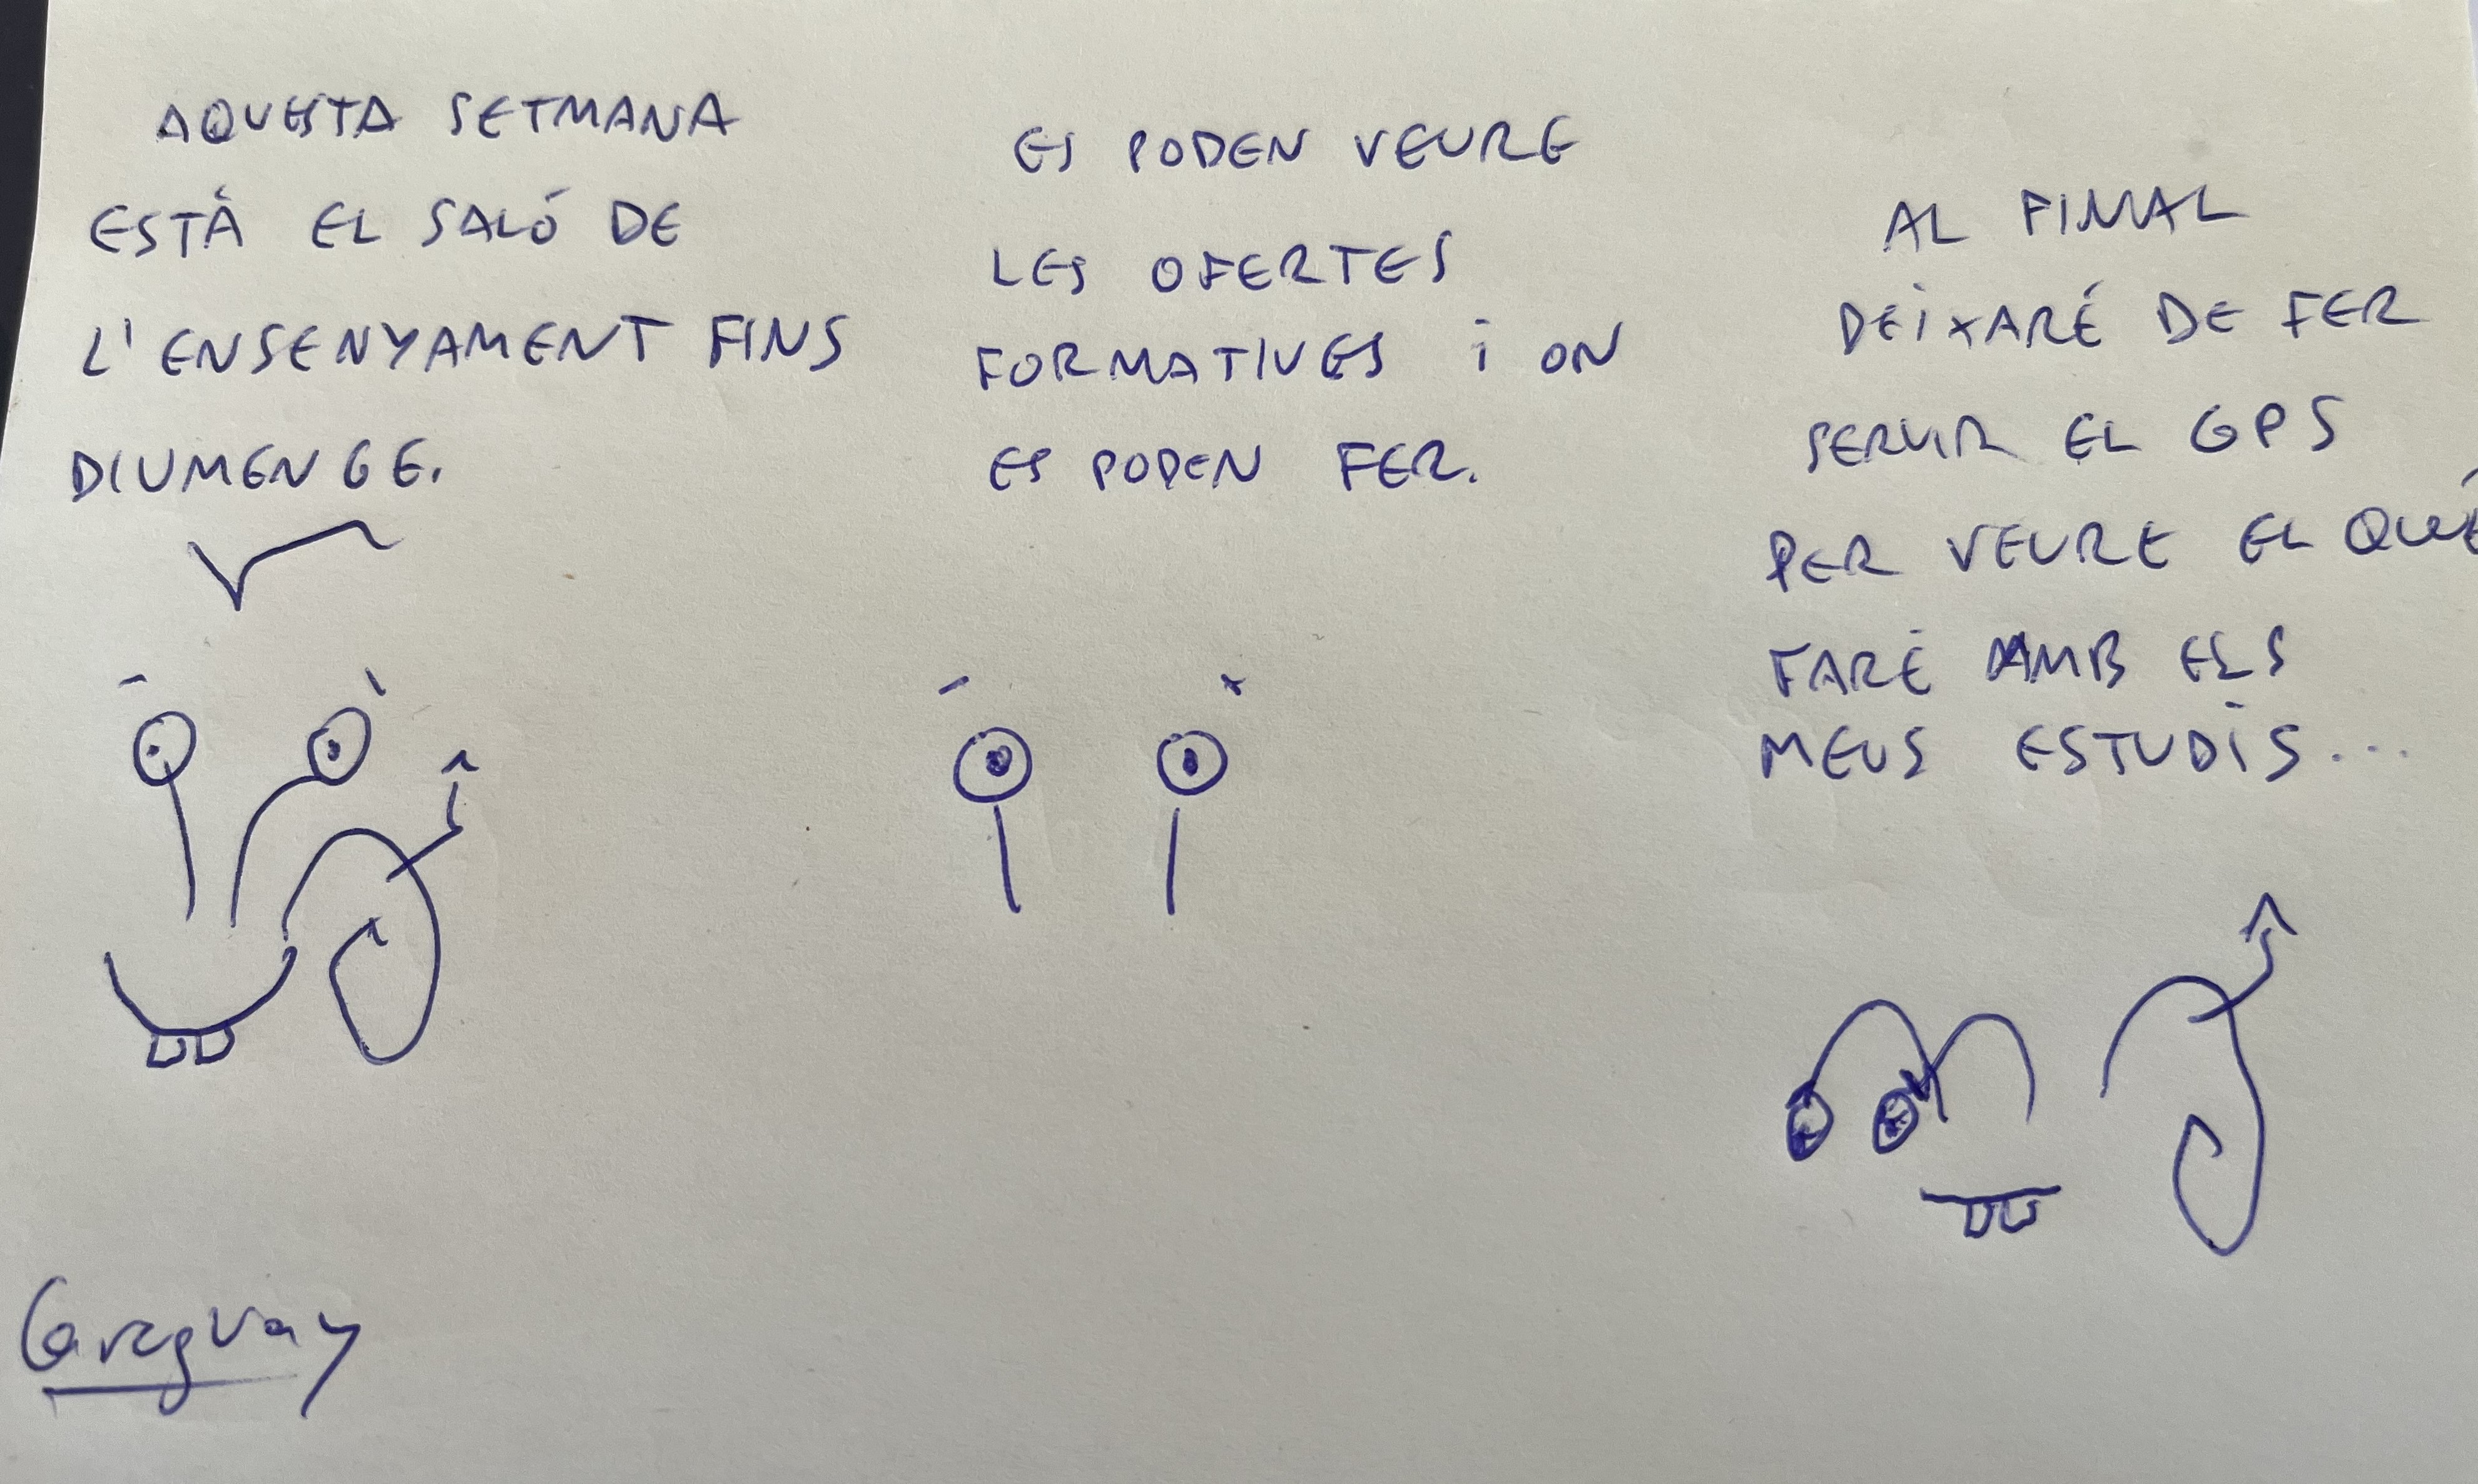 AQUESTA SETMANA
ESTÀ EL SALÓ DE
L'ENSENYAMENT FINS
DIUMENGE.
ES PODEN VEURE
LES OFERTES
FORMATIVES i ON
ES PODEN FER.
AL FINAL
DEIXARÉ DE FER
SERVIR EL GPS
PER VEURE EL QUÉ
FARÉ AMB ELS
MEUS ESTUDIS...